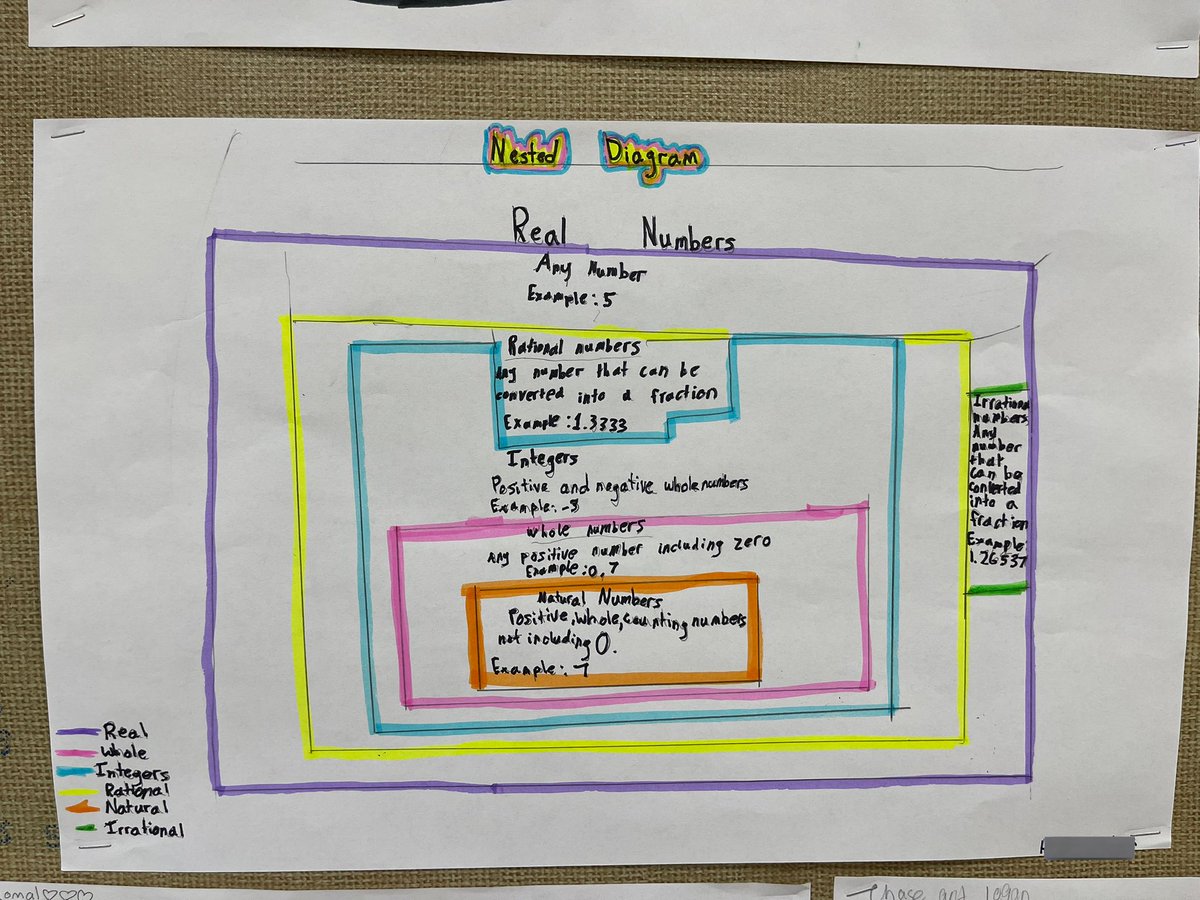 Nested Diagram
Real Numbers
Any Number
Example: 5
Rational numbers
Any number that can be
converted into a fraction
Example: 1.3333
Integers
Positive and negative whole numbers
Example: -8
Whole numbers
Any positive number including zero
Example: 0, 7
Natural Numbers
Positive, whole, counting numbers
not including 0.
Example: 7
Irrational
numbers
Any
number
that
can be
converted
into a
fraction
Example:
1.26537
Real
Whole
Integers
Rational
Natural
Irrational